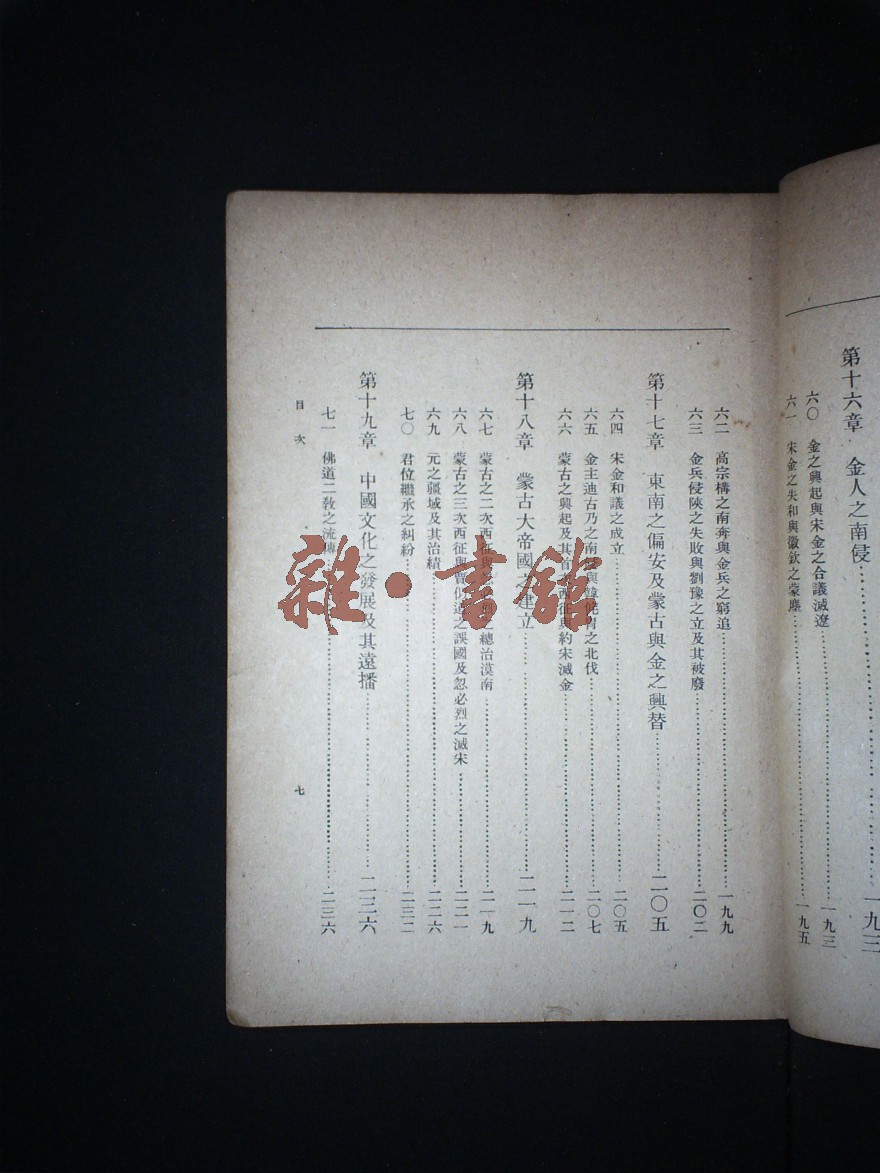 第十六章　金人之南侵……一九三
六〇　金之興起與宋金之合議滅遼……一九三
六一　宋金之失和與徽欽之蒙塵……一九五
六二　高宗構之南奔與金兵之窮追……一九九
六三　金兵侵陝之失敗與劉豫之立及其被廢……二〇二
第十七章　東南之偏安及蒙古與金之興替……二〇五
六四　宋金和議之成立……二〇五
六五　金主迪古乃之南與韓侂胄之北伐……二〇七
六六　蒙古之興起及其首西征與約宋滅金……二一二
第十八章　蒙古大帝國之建立……二一九
六七　蒙古之二次西征與總治漠南……二一九
六八　蒙古之三次西征與賈似道之誤國及忽必烈之滅宋……二二一
六九　元之疆域及其治績……二二六
七〇　君位繼承之糾紛……二三二
第十九章　中國文化之發展及其遠播……二三六
七一　佛道二教之流傳……二三六
目次
七
雜·書館